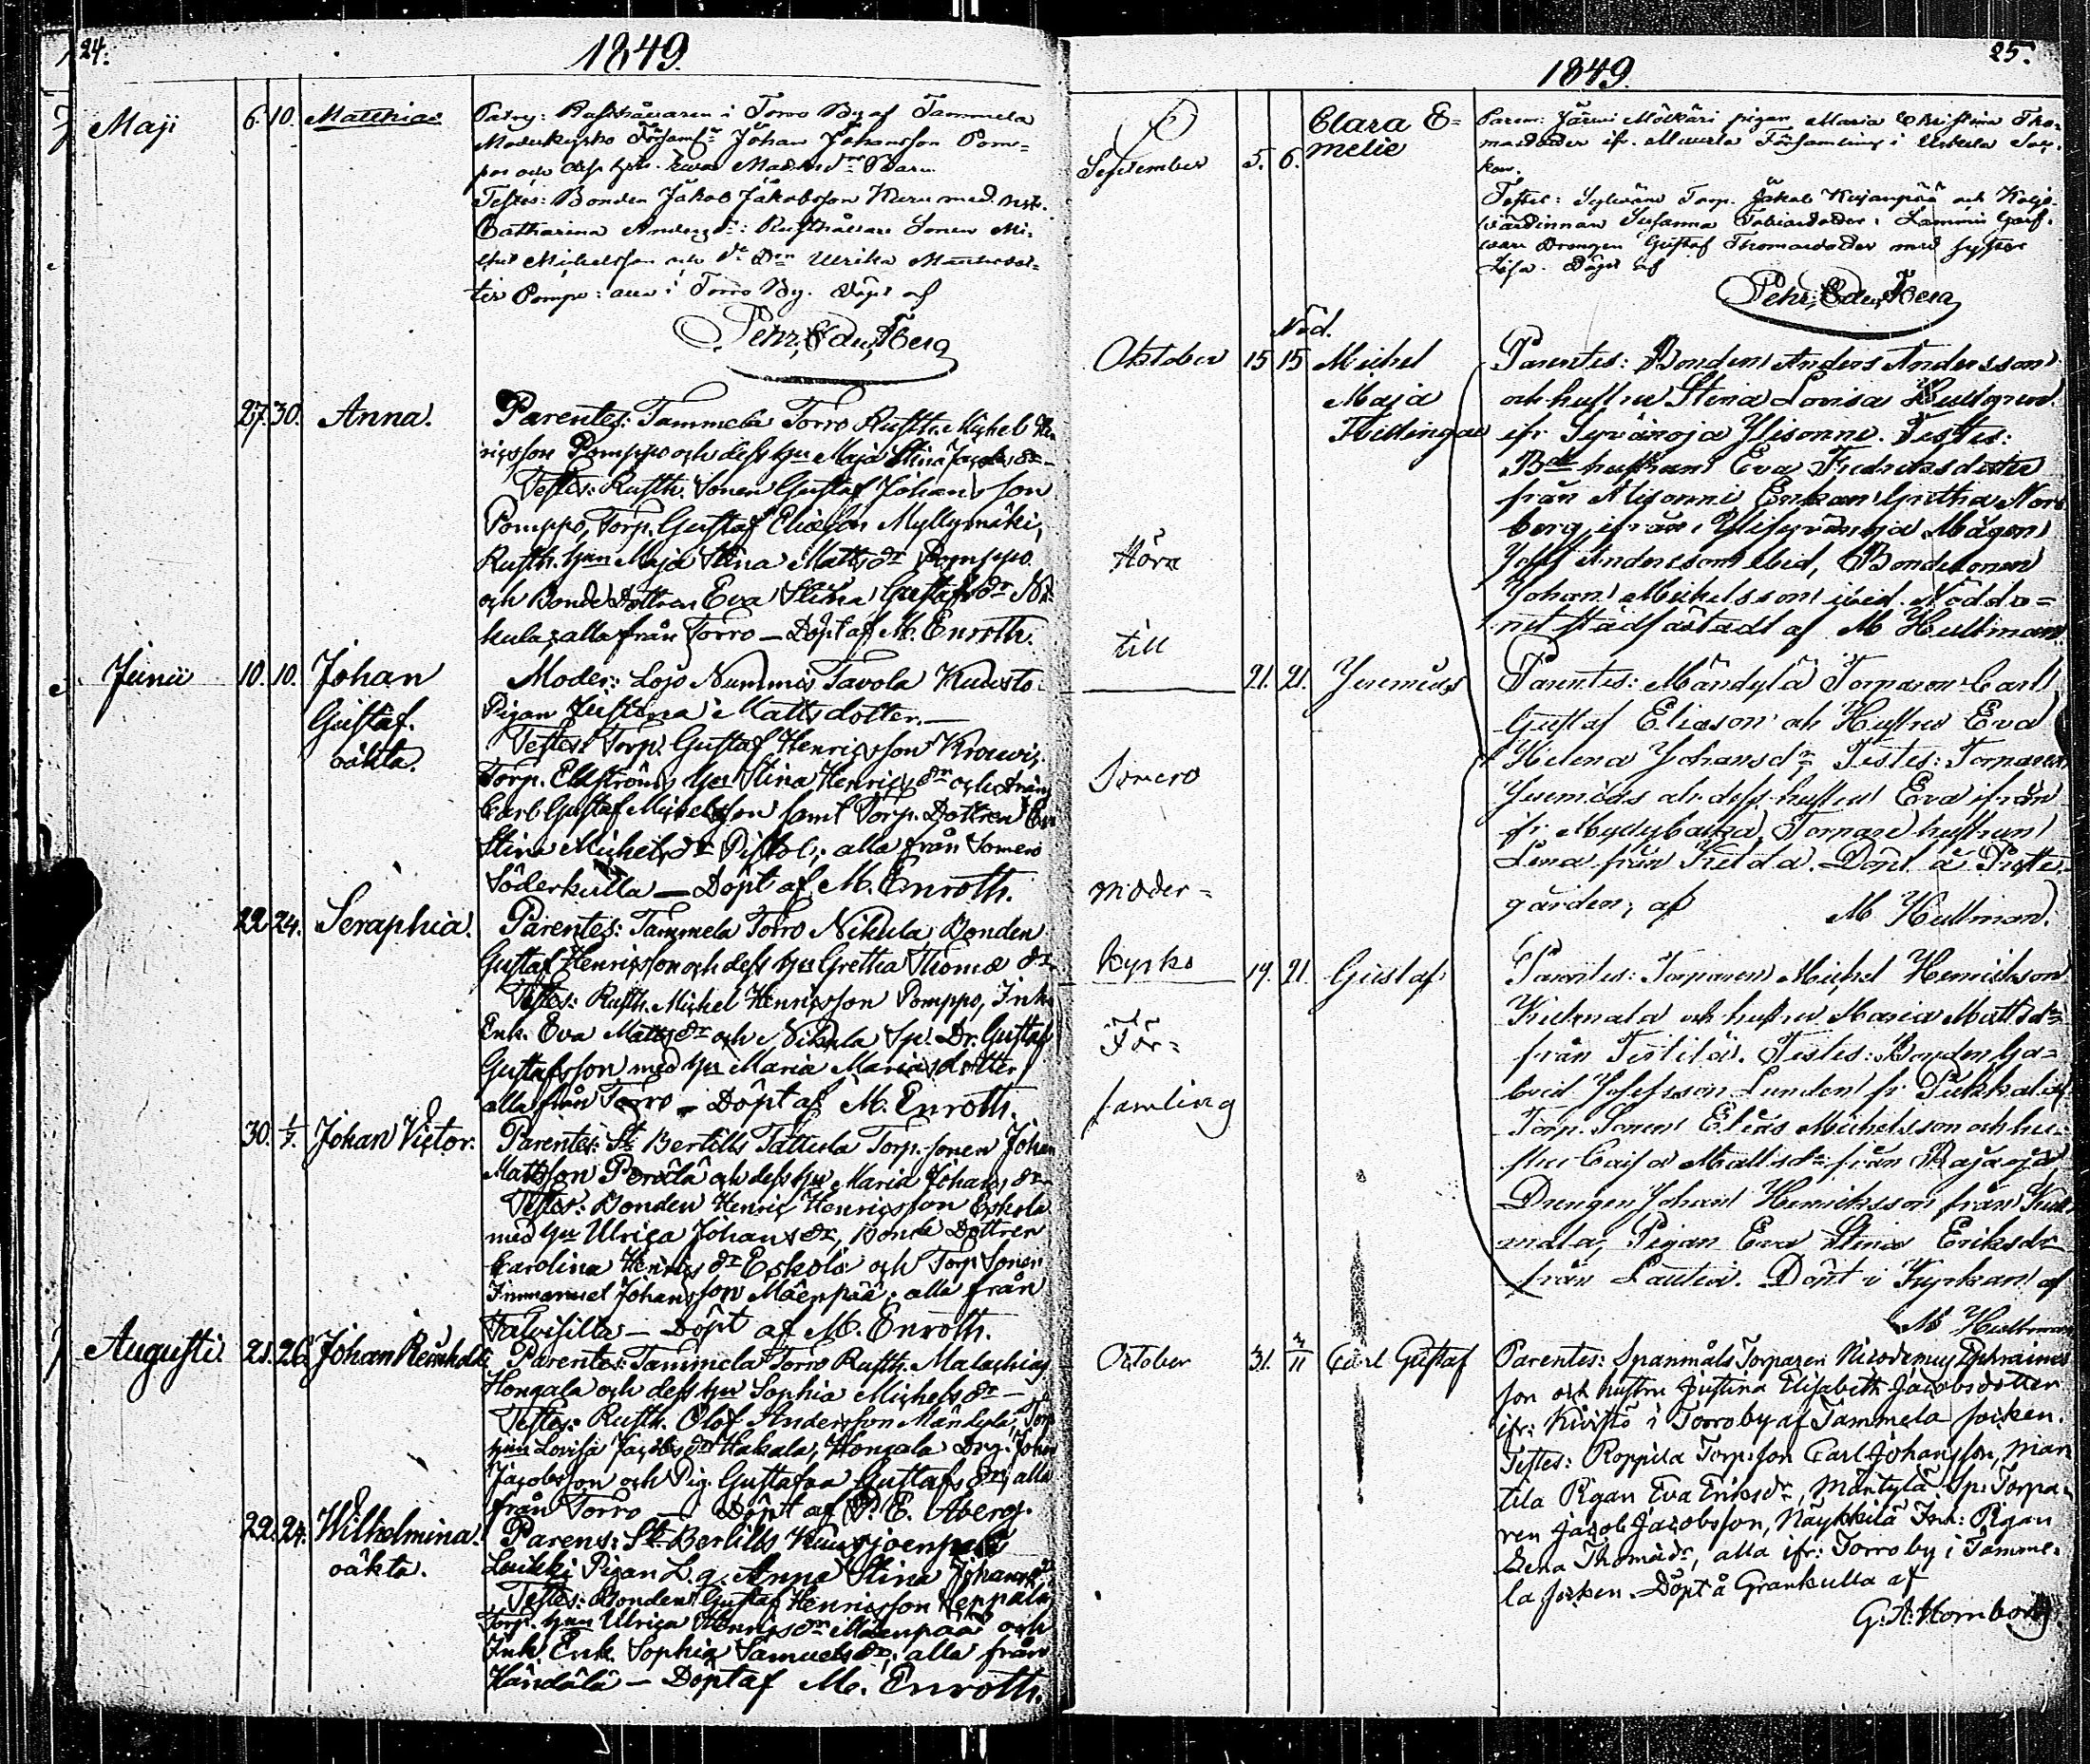 24.
1849.
Maji 6. 10. Matthias
Rusthållaren i Torro By af Tammela
Moderkyrko Församl: Johan Johansson Pom=
po och dess hu
Testes: Bonden Jakob Jakobsson med
Catharina Andersdr: Rusthållare Sonen Mi=
chel Michelsson och Ulrika
Pompo: alla i Torro By. Döpt af
Pehr Edv. Åberg
27. 30. Anna.
Parentes: Tammela Torro Rusth. Michel Hen
ricsson Pomppo och dess hu Maja Stina Jacobs dr
Testes: Rusth. Sonen Gustaf Johansson
Pomppo, Torp. Gustaf Eliasson Myllymäki,
Rusth. hun Maja Stina Matts dr Pomppo
och Bonde Dottren Eva Stina Gustafs dr Ni=
kula, alla från Torro — Döpt af M. Enroth.
Junii 10. 10. Johan
Gustaf.
oäkta.
Moder: Lojo Nummis Tavola
Pigan Justina Mattsdotter.—
Testes: Torp. Gustaf Henricsson
Torp. Ellströms hu Stina Henrics dr och dräng
Carl Gustaf Michelsson samt Torp. Dottren Eva
Stina Michels dr Pistol; alla från Somero
Söderkulla — Döpt af M. Enroth.
22. 24. Seraphia.
Parentes: Tammela Torro Nikula Bonden
Gustaf Henricsson och dess hu Gretha Thomæ dr
Testes: Rusth. Michel Henricsson Pomppo, Inh.
Enk. Eva Matts dr och Nikula Sp. Dr. Gustaf
Gustafsson med hu Maria Mariasdotter
alla från Torro — Döpt af M. Enroth.
30. 1/7. Johan Victor.
Parentes: St Bertills Tattula Torp. sonen Johan
Mattsson Perälä och dess hu Maria Johans dr
Testes: Bonden Henric Henricsson Eskola
med hu Ulrica Johans dr, Bonde Dottren
Karolina Henrics dr Eskola och Torp Sonen
Immanuel Johansson Mäenpää; alla från
Talvisilla — Döpt af M. Enroth.
Augusti. 21. 26. Johan Reinhold
Parentes: Tammela Torro Rusth. Malachias
Hongala och dess hu Sophia Michels dr —
Testes: Rusth. Olof Andersson Mäntylä, Torp
hun Lovisa Jacobs dr Hakala, Hongala Drg. Johan
Jacobsson och Pig. Gustafva Gustafs dr; alla
från Torro — Döpt af P. E. Åberg.
22. 24. Wilhelmina.
oäkta.
Parens: St Bertills Kuusjoenpää
Luikki Pigan L. q. Anna Stina Johans dr
Testes: Bonden Gustaf Henricsson Heppala,
Torp. hun Ulrica Henrics dr Mäenpää och
Inh. Enk. Sophia Samuels dr; alla från
Händälä — Döpt af M. Enroth.
25.
1849.
September 5. 6.
Clara E=
melie
Parens: Järvi Mölkäri pigan Maria Christina Tho=
masdotter ifr. Församling i Urdiala Soc=
ken.
Testes: Torp. Jakob Kujanpää och
värdinnan Susanna Tobiasdotter;
Drengen Gustaf med syster
Lisa. Döpt af
Pehr Edv. Åberg
Nöd.
October 15 15 Michel
Maja
Tvillingar
Parentes: Bonden Anders Andersson
och hustru Stina Lovisa Hultgren
ifr Syvänoja Ylisonni. Testes:
Bde hustrun Eva Fredriksdotter
från Alisonni Enkan Gretha Nor=
berg, ifrån Mågen
Josef Andersson ibid, Bondesonen
Johan Michelsson ibid. Nöddo=
pet stadfästadt af M Hullman
Höra
till
Somero
moder=
kyrko
För=
samling
21. 21. Jeremias
Parentes: Mändylä Torparen Carl
Gustaf Eliason och Hustru Eva
Helena Johansdr Testes: Torparen
Jeremias och dess hustru Eva ifrån
Torpare hustrun
Lena från Ketola. Döpt å Preste=
gården, af M Hullman.
19. 21. Gustaf
Parentes: Torparen Michel Henricksson
och hustru Maria Mattsdr
från Terttilä. Testes: Bonden Ga=
briel Josefsson Lunden fr. Pitkäl
Torp. Sonen Elias Michelsson och hu=
stru Caisa Mattsdr från
Drengen Johan Henriksson från
mala, Pigan Eva Stina Eriksdr
från Lautela. Döpt i Kyrkan af
M Hullman
October 31. 3/11 Carl Gustaf
Parentes: Spanmåls Torparen Nicodemus Ephraims
son och hustru Justina Elisabeth Jacobsdotter
ifr: Kivistö i Torro by af Tammela socken.
Testes: Roppila Torp: son Carl Johansson, Man
tila Pigan Eva Eriksdr, Mäntylä Sp: Torpa=
ren Jacob Jacobsson, Näykkilä Inh: Pigan
Lena Thomædr, alla ifr: Torro by i Tamme=
la socken. Döpt å Grankulla af
G. A. Hornborg.